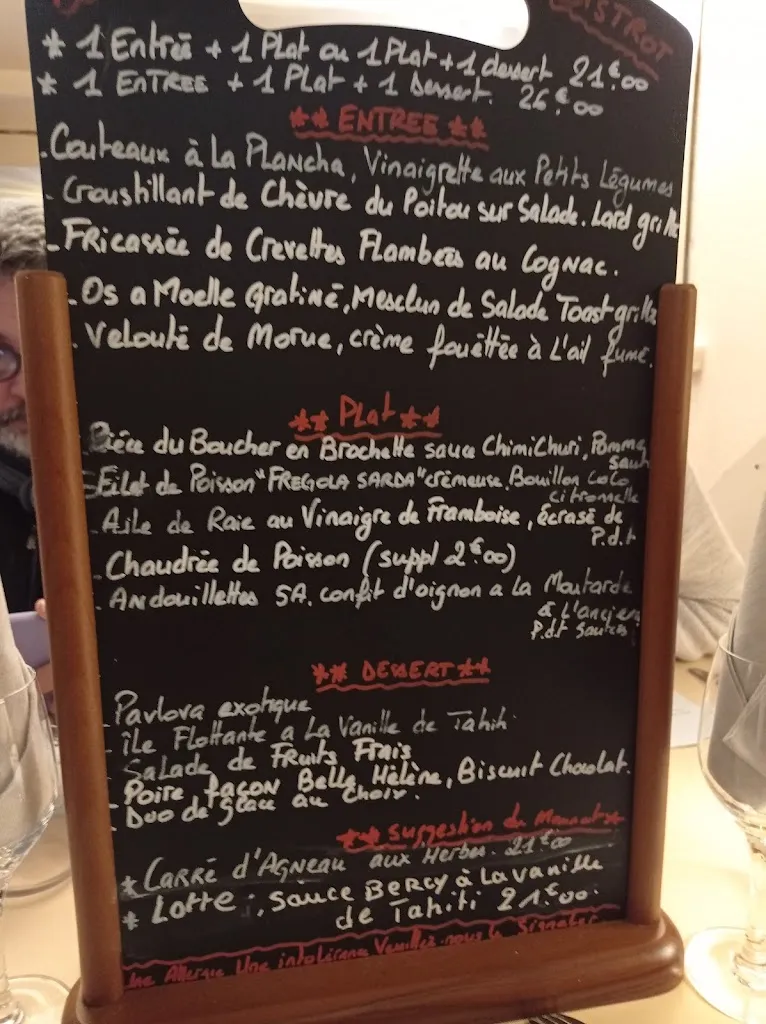 BISTROT
* 1 Entrée + 1 Plat ou 1 Plat + 1 dessert 21€00
* 1 ENTREE + 1 Plat + 1 Dessert. 26€00
** ENTREE **
- Couteaux à La Plancha, Vinaigrette aux Petits Légumes
- Croustillant de Chèvre du Poitou sur Salade. Lard grillé
- Fricassée de Crevettes Flambées au Cognac.
- Os a Moelle gratiné, Mesclun de Salade Toast grillé
- Velouté de Morue, crème fouéttée à L'ail fumé.
** Plat **
- Pièce du Boucher en Brochette sauce ChimiChuri, Pomme
saut
- Filet de Poisson "FREGOLA SARDA" crèmeuse, Bouillon CoCo
citronnelle
- Aile de Raie au Vinaigre de Framboise, écrasé de
P.d.t
- Chaudrée de Poisson (suppl 2€00)
- ANdouillettes 5A. confit d'oignon a la Moutarde
à L'ancienne
P.d.t sautées
** DESSERT **
- Pavlova exotique
- île Flottante a La Vanille de Tahiti
- Salade de Fruits Frais
- Poire façon Belle Hélène, Biscuit Chocolat.
- Duo de glace au Choix.
** Suggestion du Moment **
* CARRÉ d'AGNeau aux Herbes. 21€00
* Lotte, Sauce BERCY à La vanille
de Tahiti 21€00.
Une Allergie Une intolérance Veuillez nous le Signaler